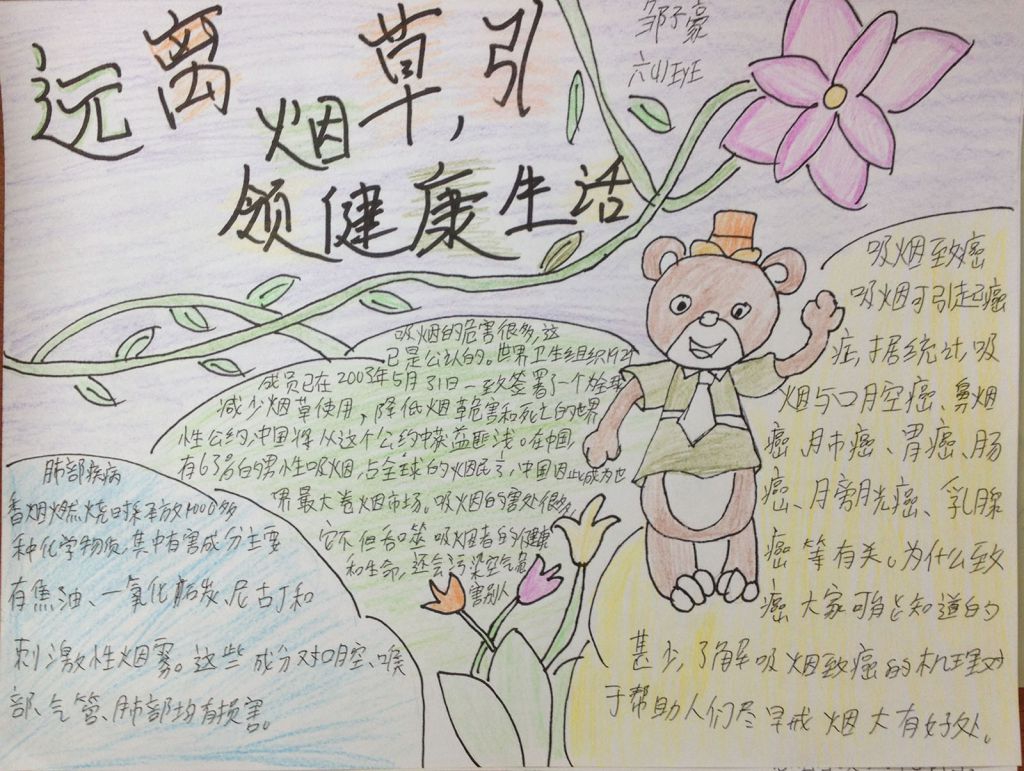 远离烟草，引
领健康生活
邹子豪
六(4)班
吸烟的危害很多，这
已是公认的。世界卫生组织
成员已在2003年5月31日一致签署了一个
减少烟草使用，降低烟草危害和死亡的世界
性公约，中国将从这个公约中获益匪浅。在中国
有63%的男性吸烟，占全球的烟民，中国因此成为世
界最大卷烟市场。吸烟的害处很多，
它不但吞噬吸烟者的健康
和生命，还会污染空气危
害别人
肺部疾病
香烟燃烧时释放4000多
种化学物质，其中有害成分主要
有焦油、一氧化碳、尼古丁和
刺激性烟雾。这些成分对口腔、喉
部、气管、肺部均有损害。
吸烟致癌
吸烟可引起癌
症，据统计，吸
烟与口腔癌、鼻烟
癌、肺癌、胃癌、肠
癌、膀胱癌、乳腺
癌等有关。为什么致
癌大家可能知道的
甚少，了解吸烟致癌的机理对
于帮助人们尽早戒烟大有好处。